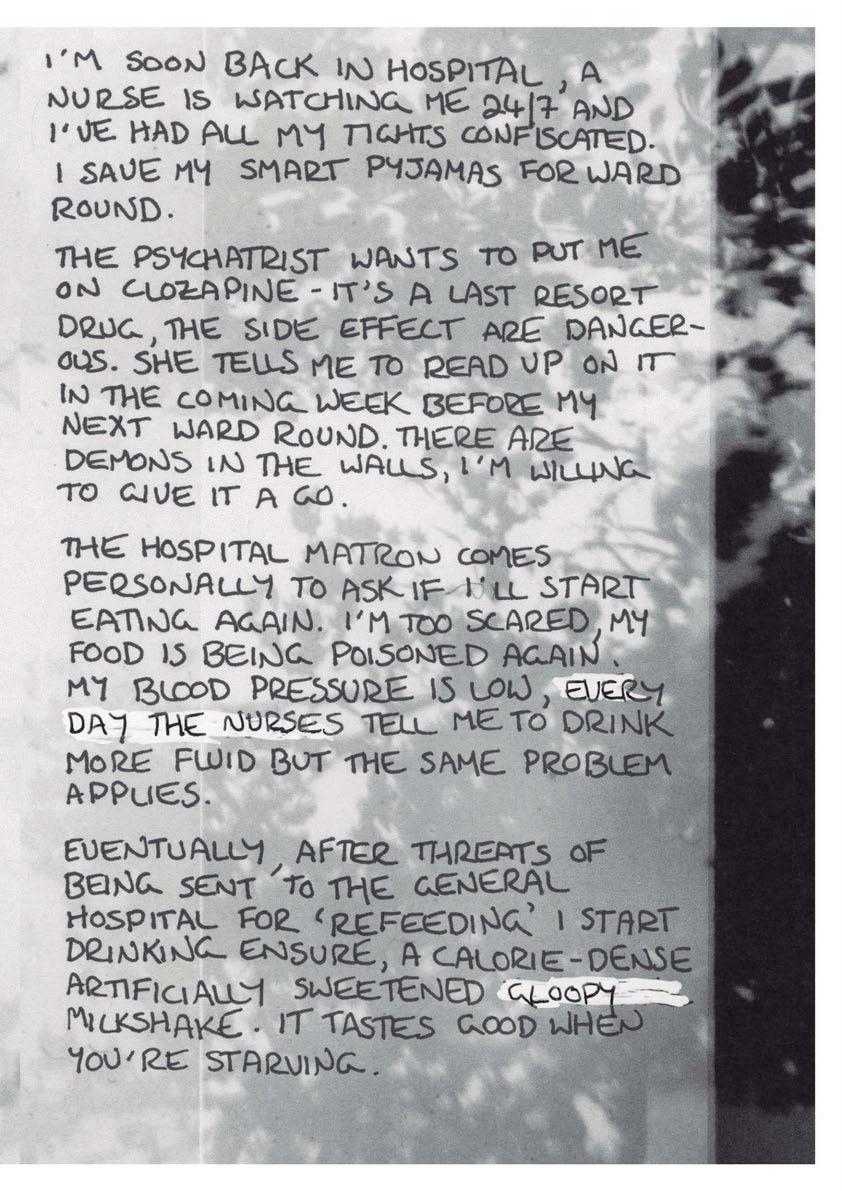 I'M SOON BACK IN HOSPITAL, A
NURSE IS WATCHING ME 24/7 AND
I'VE HAD ALL MY TIGHTS CONFISCATED.
I SAVE MY SMART PYJAMAS FOR WARD
ROUND.
THE PSYCHATRIST WANTS TO PUT ME
ON CLOZAPINE - IT'S A LAST RESORT
DRUG, THE SIDE EFFECT ARE DANGER-
OUS. SHE TELLS ME TO READ UP ON IT
IN THE COMING WEEK BEFORE MY
NEXT WARD ROUND. THERE ARE
DEMONS IN THE WALLS, I'M WILLING
TO GIVE IT A GO.
THE HOSPITAL MATRON COMES
PERSONALLY TO ASK IF I'LL START
EATING AGAIN. I'M TOO SCARED, MY
FOOD IS BEING POISONED AGAIN.
MY BLOOD PRESSURE IS LOW, EVERY
DAY THE NURSES TELL ME TO DRINK
MORE FLUID BUT THE SAME PROBLEM
APPLIES.
EVENTUALLY, AFTER THREATS OF
BEING SENT TO THE GENERAL
HOSPITAL FOR 'REFEEDING' I START
DRINKING ENSURE, A CALORIE-DENSE
ARTIFICIALLY SWEETENED GLOOPY
MILKSHAKE. IT TASTES GOOD WHEN
YOU'RE STARVING.